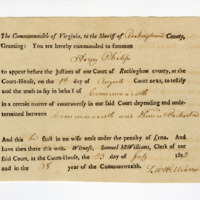 The Commonwealth of Virginia, to the Sheriff of Rockingham County,
Greeting: You are hereby commanded to summon
Henry
to appear before the Justices of our Court of Rockingham county, at the
Court-House, on the day of August Court next, to testify
and the truth to say in behalf of Commonwealth
in a certain matter of controversy in our said Court depending and undetermined between
Commonwealth and Thomas
And this he shall in no wise omit under the penalty of £100. And
have then there this writ. Witness, Samuel McWilliams, Clerk of our
said Court, at the Court-House, the 23 day of July 1803
and in the 28 year of the Commonwealth.
S. McWilliams